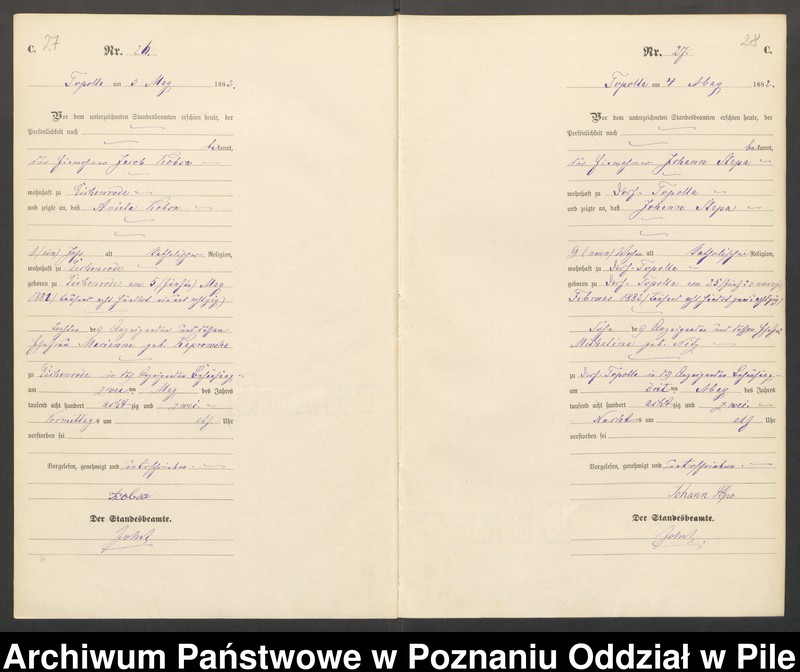 C. 27
Nr. 26.
Topolla am 3 May 1882.
Vor dem unterzeichneten Standesbeamten erschien heute, der
Persönlichkeit nach
bekannt,
Jacob Kobsa
wohnhaft zu Eichenrode
und zeigte an, daß Aniela Kobsa
1 (ein) Jahr alt Katholischer Religion,
wohnhaft zu Eichenrode
geboren zu Eichenrode am 5 (fünften) May
Tochter des Anzeigenden und dessen
Ehefrau Marianne geb.
zu Eichenrode in des Anzeigenden Behausung
am zwei ten May des Jahres
tausend acht hundert acht zig und zwei
Vormittags um Uhr
verstorben sei
Vorgelesen, genehmigt und unterschrieben
Kobsa
Der Standesbeamte.
28 C.
Nr. 27.
Topolla am 4 May 1882.
Vor dem unterzeichneten Standesbeamten erschien heute, der
Persönlichkeit nach
bekannt,
Johann Stepa
wohnhaft zu Dorf-Topolla
und zeigte an, daß Johann Stepa
9 (neun) Wochen alt Katholischer Religion,
wohnhaft zu Dorf-Topolla
geboren zu Dorf-Topolla am 25 (fünf und zwanzig)
Februar 1882 (tausend acht hundert zwei achtzig)
Sohn des Anzeigenden und dessen Ehefrau
Michalina geb.
zu Dorf-Topolla in des Anzeigenden Behausung
am dritten May des Jahres
tausend acht hundert acht zig und zwei
Nachts um Uhr
verstorben sei
Vorgelesen, genehmigt und unterschrieben
Johann
Der Standesbeamte.
Archiwum Państwowe w Poznaniu Oddział w Pile